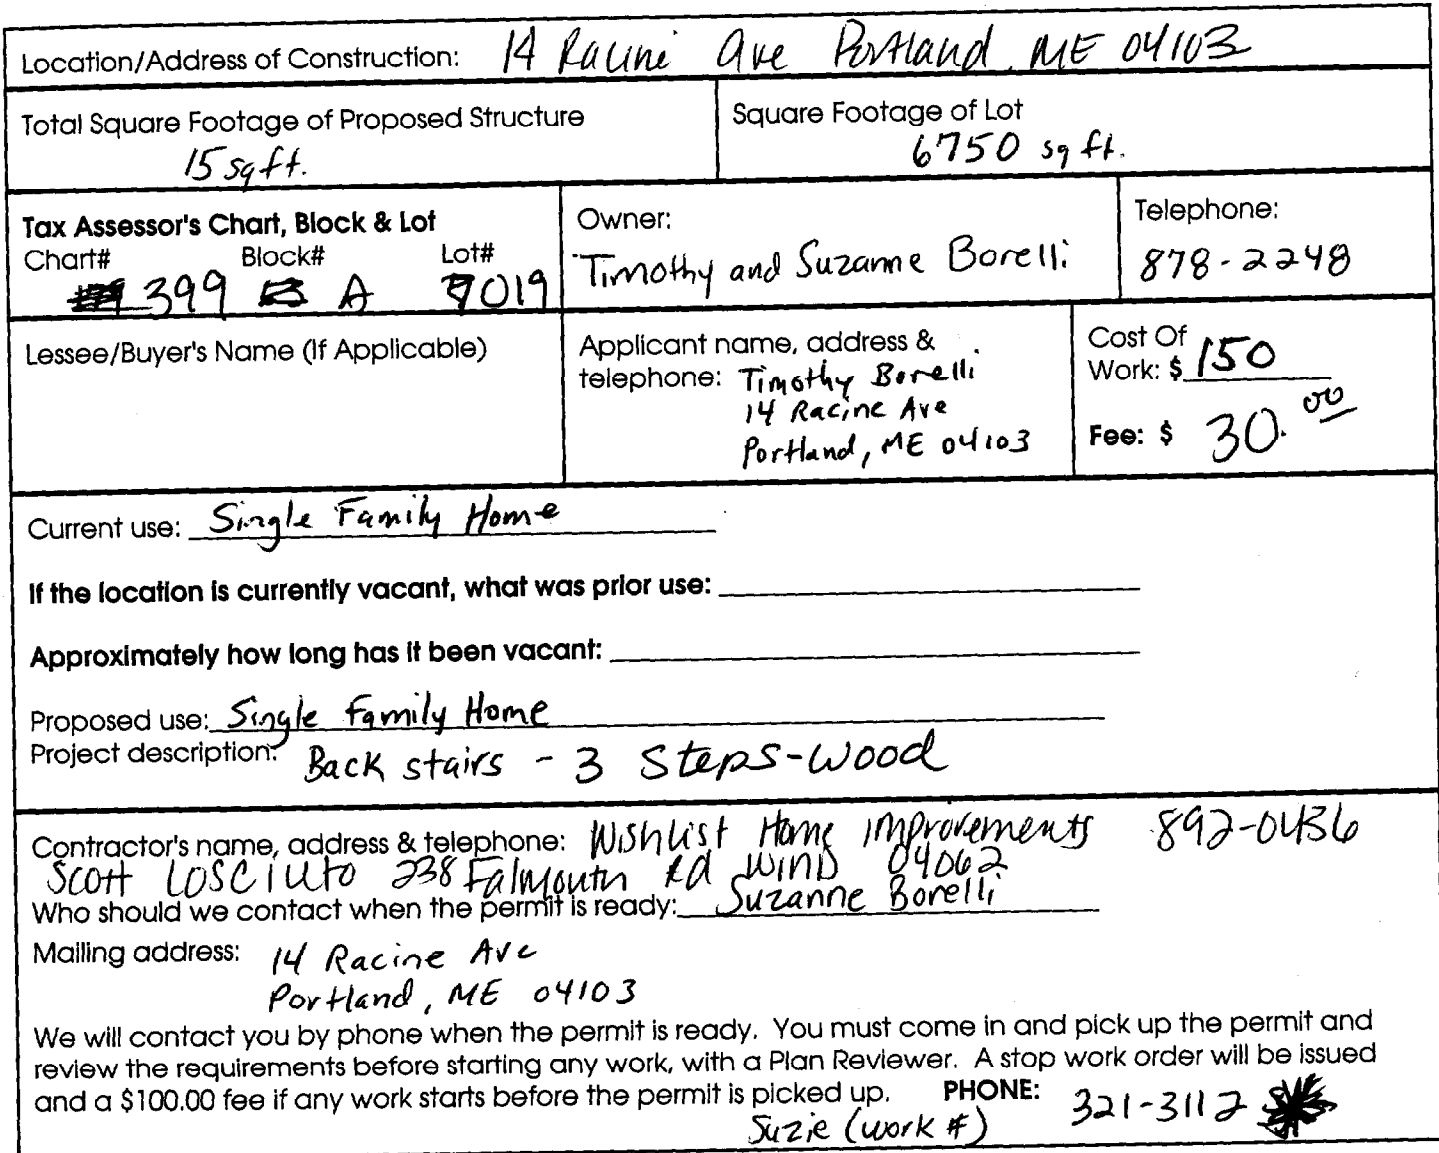 Location/Address of Construction: 14 Racine Ave Portland, ME 04103
Total Square Footage of Proposed Structure
15 sq ft.
Square Footage of Lot
6750 sq ft.
Tax Assessor's Chart, Block & Lot
Chart# Block# Lot#
399 A 019
Owner:
Timothy and Suzanne Borelli
Telephone:
878-2248
Lessee/Buyer's Name (If Applicable)
Applicant name, address &
telephone: Timothy Borelli
14 Racine Ave
Portland, ME 04103
Cost Of
Work: $ 150
Fee: $ 30.00
Current use: Single Family Home
If the location is currently vacant, what was prior use:
Approximately how long has it been vacant:
Proposed use: Single Family Home
Project description: Back stairs - 3 Steps-wood
Contractor's name, address & telephone: Wishlist Home Improvements 892-0436
Scott Losciuto 238 Falmouth Rd WIND 04062
Who should we contact when the permit is ready: Suzanne Borelli
Mailing address: 14 Racine Ave
Portland, ME 04103
We will contact you by phone when the permit is ready. You must come in and pick up the permit and
review the requirements before starting any work, with a Plan Reviewer. A stop work order will be issued
and a $100.00 fee if any work starts before the permit is picked up. PHONE: 321-3112
Suzie (work #)